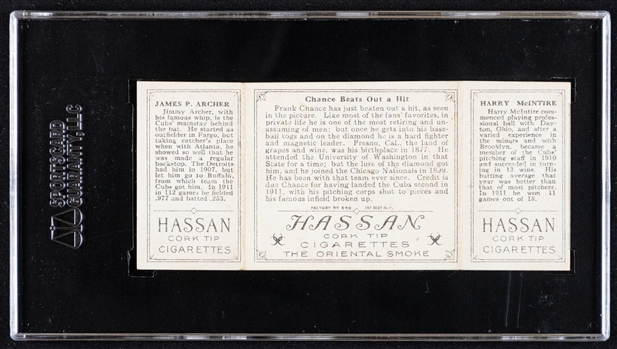 SPORTSCARD
GUARANTY, LLC
JAMES P. ARCHER
Jimmy Archer, with
his famous whip, is the
Cubs' mainstay behind
the bat. He started as
outfielder in Fargo, but
taking catcher's place
when with Atlanta, he
showed so well that he
was made a regular
backstop. The Detroits
had him in 1907, but
let him go to Buffalo,
from which team the
Cubs got him. In 1911
in 112 games he fielded
.977 and batted .253.
HASSAN
CORK TIP
CIGARETTES
Chance Beats Out a Hit
Frank Chance has just beaten out a hit, as seen
in the picture. Like most of the fans' favorites, in
private life he is one of the most retiring and un-
assuming of men; but once he gets into his base-
ball togs and on the diamond he is a hard fighter
and magnetic leader. Fresno, Cal., the land of
grapes and wine, was his birthplace in 1877. He
attended the University of Washington in that
State for a time; but the lure of the diamond got
him, and he joined the Chicago Nationals in 1899.
He has been with that team ever since. Credit is
due Chance for having landed the Cubs second in
1911, with his pitching corps shot to pieces and
his famous infield broken up.
FACTORY No 649 1ST DIST. N.Y.
HASSAN
CORK TIP
CIGARETTES
THE ORIENTAL SMOKE
HARRY McINTIRE
Harry McIntire com-
menced playing profes-
sional ball with Day-
ton, Ohio, and after a
varied experience in
the minors and with
Brooklyn, became a
member of the Cubs'
pitching staff in 1910
and succeeded in turn-
ing in 13 wins. His
batting average that
year was better than
that of most pitchers.
In 1911 he won 11
games out of 18.
HASSAN
CORK TIP
CIGARETTES